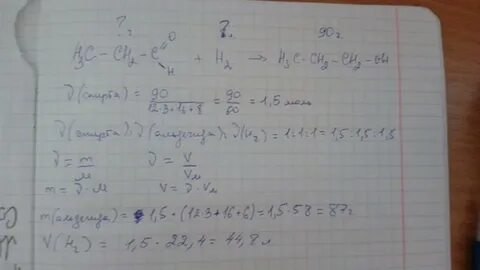 ? г ? л. 90 г.
H₃C – CH₂ – C O H + H₂ → H₃C – CH₂ – CH₂ – OH
ν(спирта) = 90 / 12·3+16+8 = 90 / 60 = 1,5 моль
ν(спирта):ν(альдегида):ν(H₂) = 1:1:1 = 1,5:1,5:1,5
ν = m / M ν = V / Vm
m = ν · M V = ν · Vm
m(альдегида) = 1,5 · (12·3+16+6) = 1,5 · 58 = 87 г
V(H₂) = 1,5 · 22,4 = 44,8 л